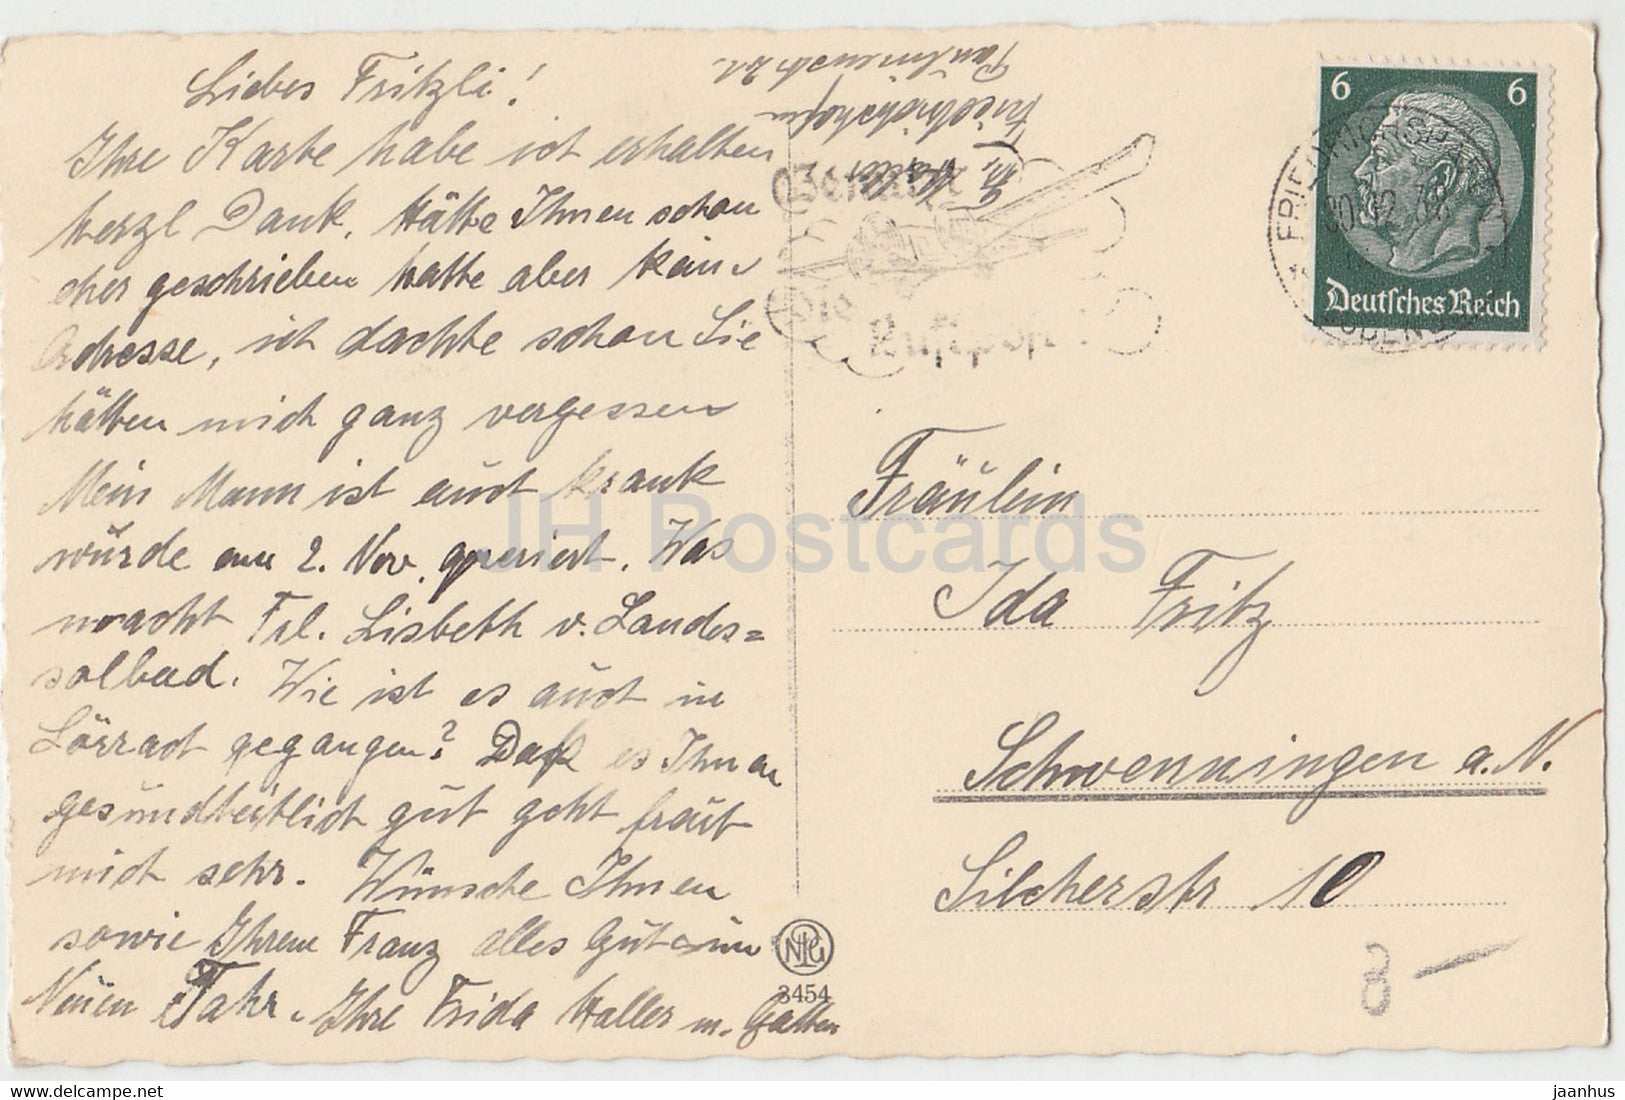 Liebes Fritzli!
Ihre Karte habe ich erhalten
herzl Dank. Hätte Ihnen schon
eher geschrieben hatte aber kein
Adresse, ich dachte schon Sie
hätten mich ganz vergessen
Mein Mann ist auch krank
würde am 2. Nov. operiert. Was
macht Frl. Lisbeth v. Landes=
solbad. Wie ist es auch in
Lörrach gegangen? Daß es Ihnen
gesundheitlich gut geht freut
mich sehr. Wünsche Ihnen
sowie Ihrem Franz alles Gute im
Neuen Jahr. Ihre Frida Haller m. Gatten
Haller
Friedrichshafen
Benütze
Die
Luftpost!
6 6
Deutsches Reich
FRIEDRICHSHAFEN
BODENSEE
Fräulein
Ida Fritz
Schwenningen a.N.
Silcherstr 10
8 –
NPG
3454
JH Postcards
delcampe.net
jaanhus